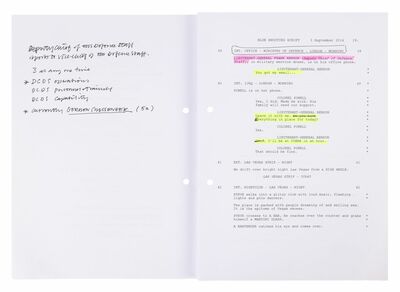 Deputy Chief of the Defence Staff
reports to Vice-Chief of the Defence Staff.
3 at any one time
* DCDS
DCDS
DCDS Capability
* currently GORDON (52)
BLUE SHOOTING SCRIPT 5 September 2014
39 INT. OFFICE - MINISTRY OF DEFENCE - LONDON - MORNING 39
LIEUTENANT-GENERAL FRANK BENSON
in military service dress, is in his office phone.
LIEUTENANT-GENERAL BENSON
You got my email...
40 INT. - LONDON - MORNING 40
POWELL is on her phone.
COLONEL POWELL
Yes, I did. Made me sick. His
family will need our support.
LIEUTENANT-GENERAL BENSON
Leave it with me.
Everything in place for today?
COLONEL POWELL
Yes.
LIEUTENANT-GENERAL BENSON
I'll be at COBRA in an hour.
COLONEL POWELL
That should be fine.
41 EXT. LAS VEGAS STRIP - NIGHT 41
We drift over bright light Las Vegas from a HIGH ANGLE.
LAS VEGAS STRIP -
42 INT. NIGHTCLUB - LAS VEGAS - NIGHT 42
STEVE walks into a glitzy club with loud music. Flashing
lights and pole dancers.
The place is packed with people dreaming of and selling sex.
It is the epitome of Vegas excess.
STEVE crosses to a BAR. He reaches over the counter and grabs
himself a MARTINI GLASS.
A BARTENDER catches his eye and comes over.